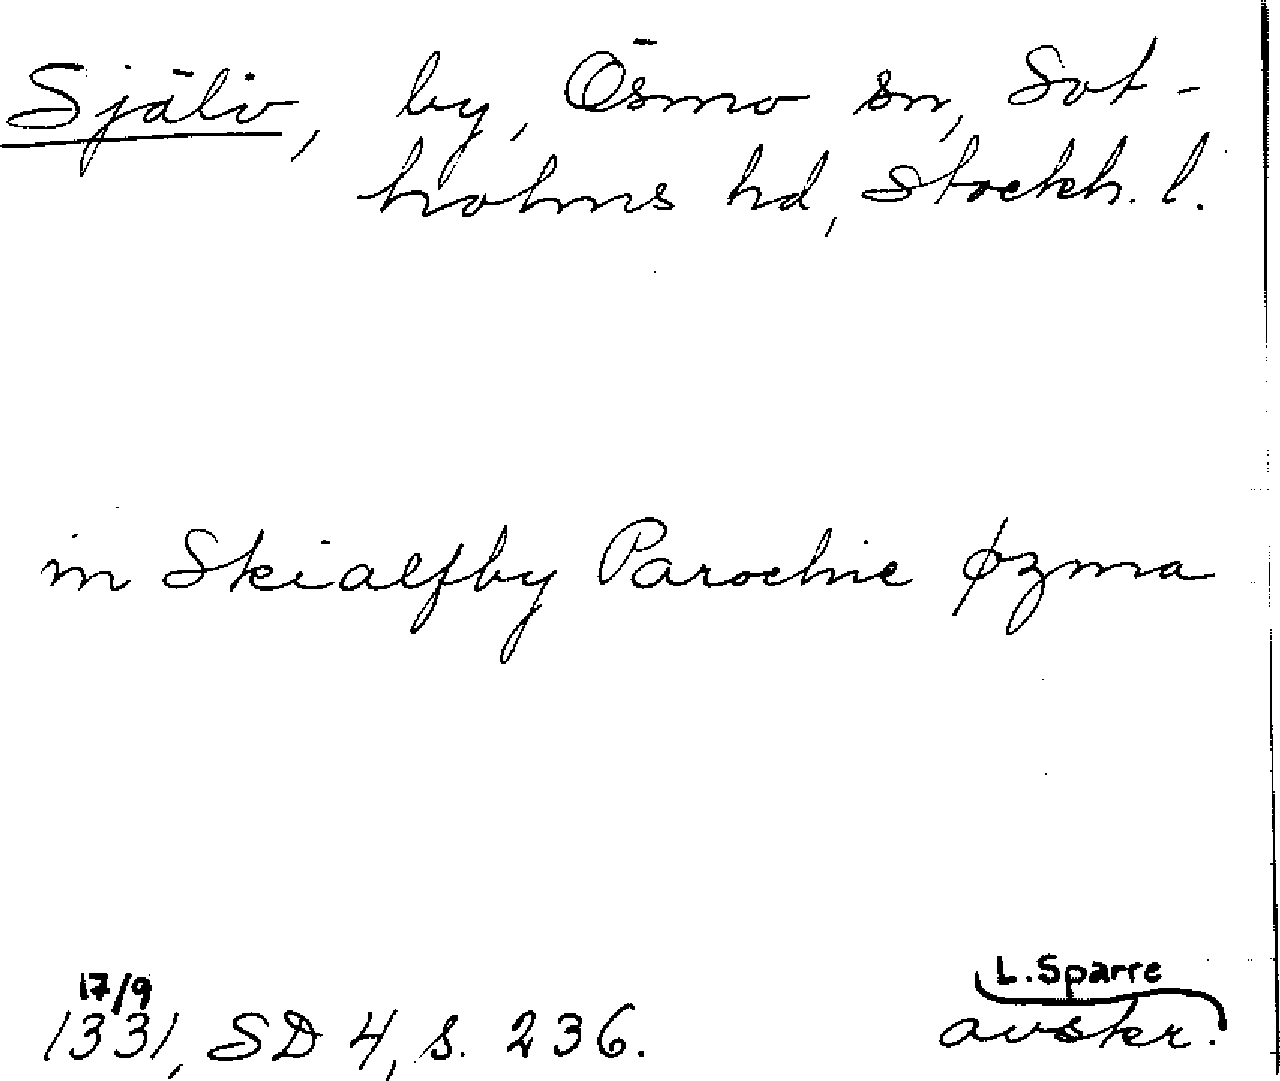 Själv, by, Ösmo sn, Sot-
holms hd, Stockh. l.
in Skialfby Parochie øzma
17/9
1331, SD 4, s. 236.
L. Sparre
avskr.